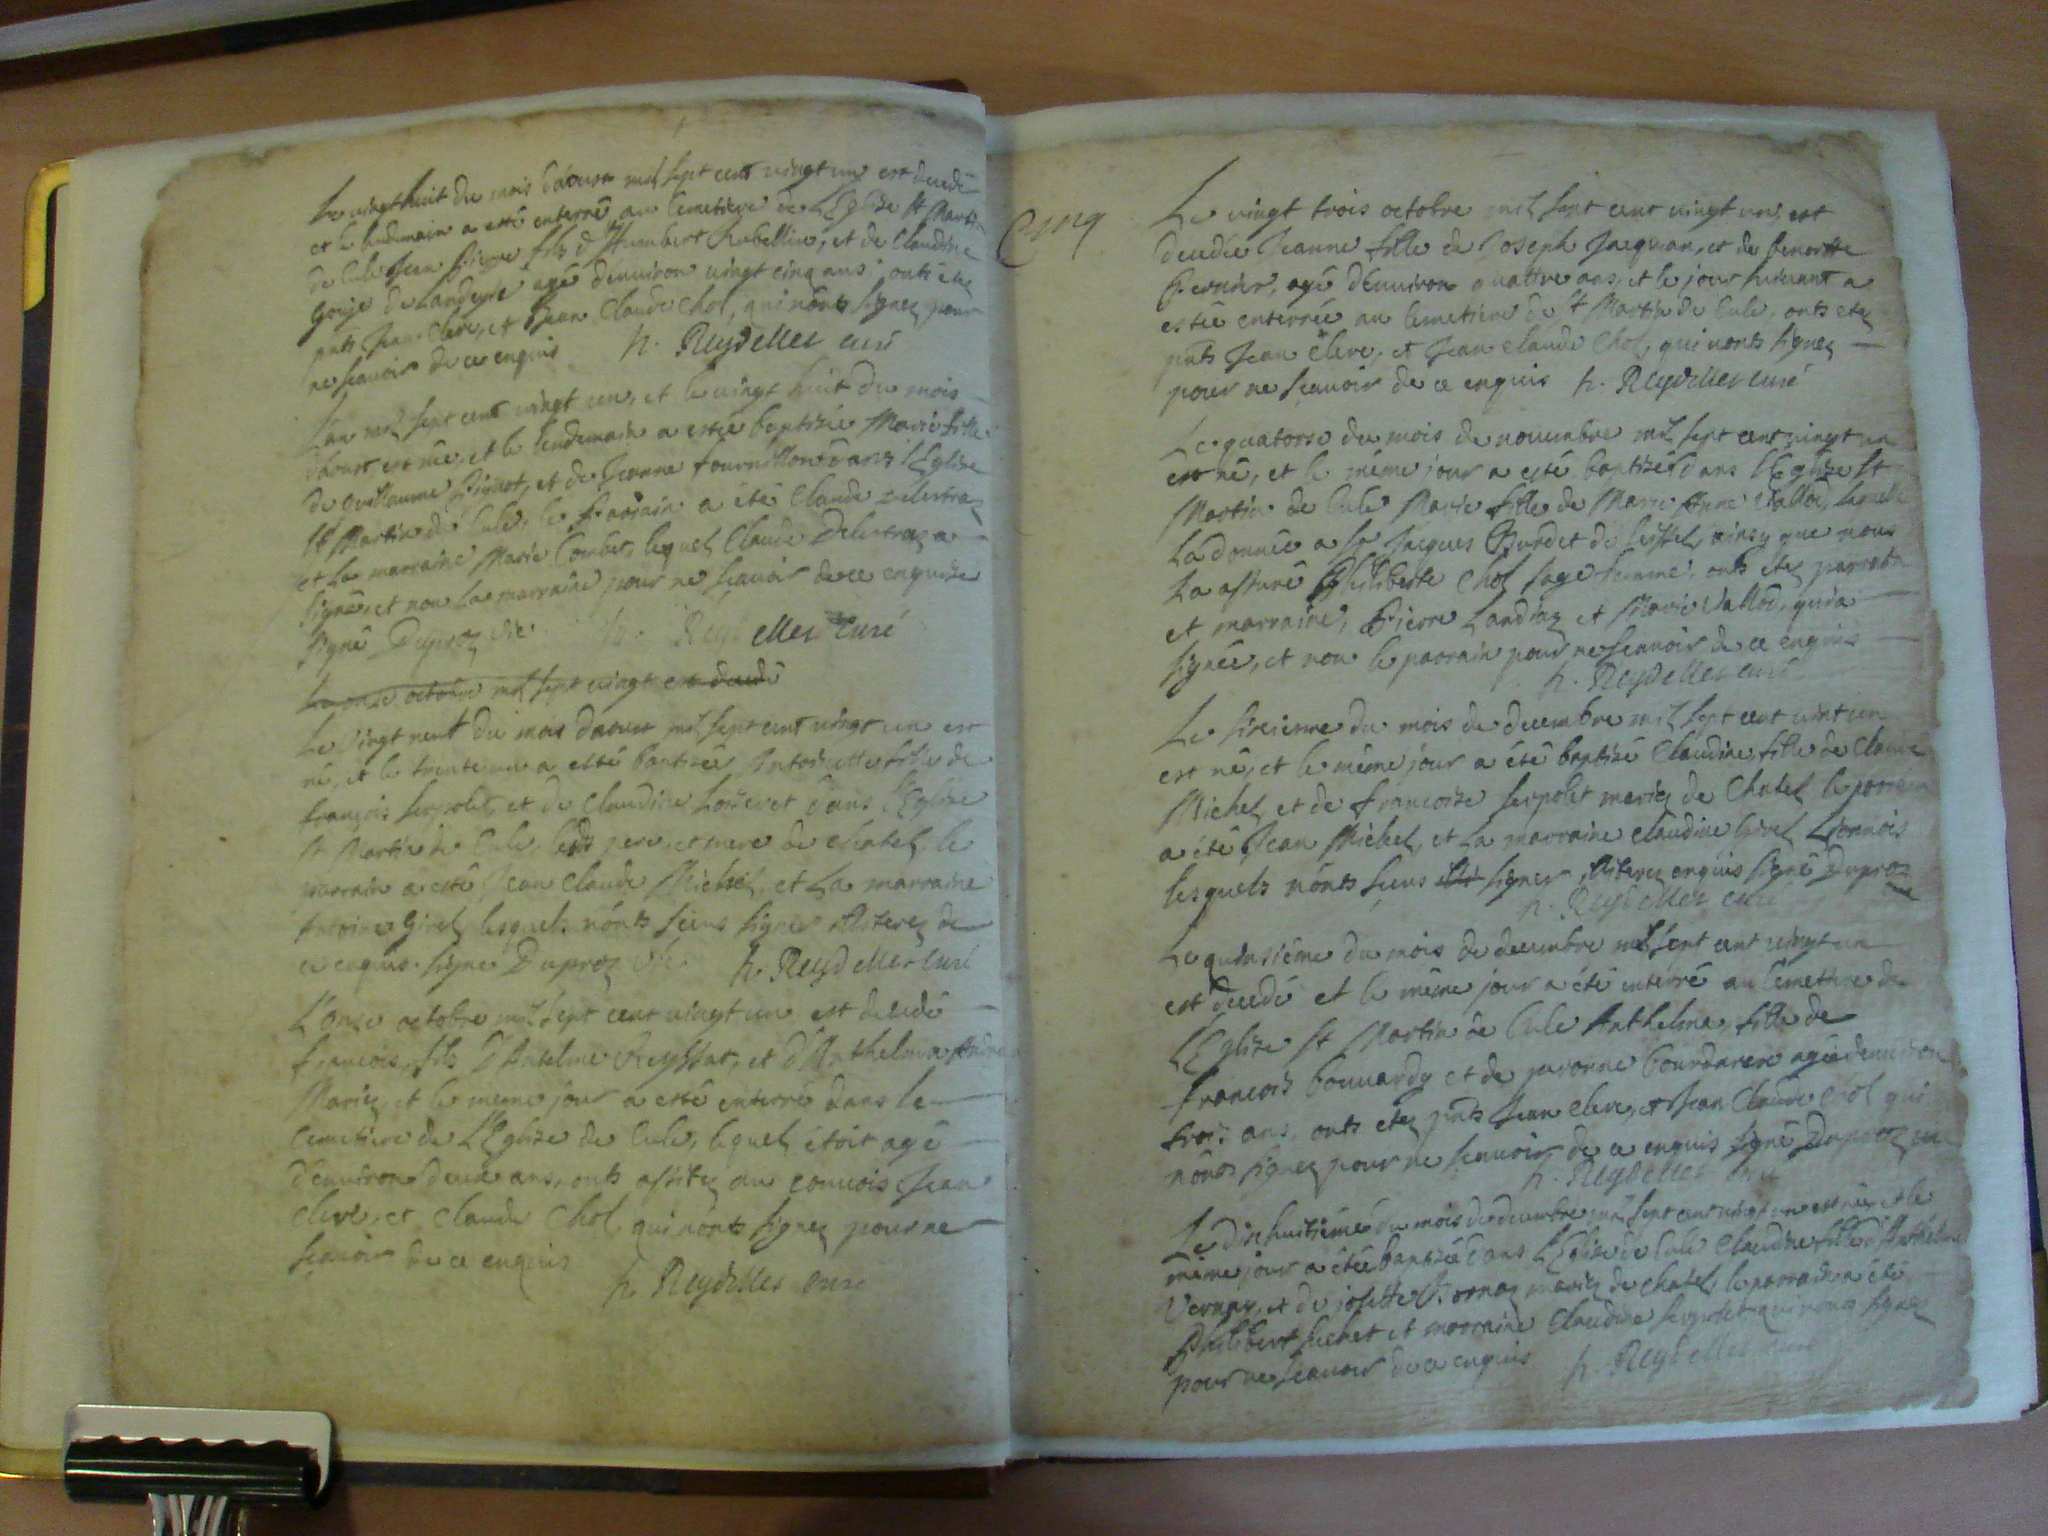 Le vingt huit du mois daoust mil sept cent vingt un est decedé
et le lendemain a esté enterré au Cemetiere de L'Eglise St Martin
de Cule Jean Pierre fils d'Humbert Rubellin, et de Claudine
de Landeyse agé denviron vingt cinq ans, onts étés
pnts Jean Clerc, et Jean Claude Chol, qui nonts signez pour
ne scavoir de ce enquis h. Reydellet curé
L'an mil sept cent vingt un, et le vingt huit du mois
daoust est née, et le lendemain a esté baptisée Marie fille
de Guillaume Pignot, et de Jeanne fournillon dans l'Eglise
St Martin de Cule, le Parrain a été Claude Delestraz
et La marraine Marie Combet, lequel Claude Delestraz a
signé, et non La marraine pour ne scavoir de ce enquise
signé Duproz vic. h. Reydellet Curé
Le onze octobre mil sept vingt est decedé
Le vingt neuf du mois daoust mil sept cent vingt un est
né, et le trente un a esté baptisée Antoinette fille de
françois serpolet, et de Claudine dans l'Eglise
St Martin de Cule, lesds pere et mere de Chatel, le
parrain a esté Jean Claude Michel, et La marraine
Antoine Girel, lesquels nonts sceus signer de
ce enquis. signé Duproz vic. h. Reydellet Curé
L'onze octobre mil sept cent vingt un est decedé
francois, fils d'Anselme Reyssat, et d'Anthelma
Mariez, et le meme jour a esté enterré dans le
Cemetiere de L'Eglise de Cule, lequel étoit agé
d'environ deux ans, onts assitez au convois Jean
Clerc, et Claude Chol, qui nonts signez pour ne
scavoir de ce enquis
h. Reydellet Curé
Cinq
Le vingt trois octobre mil sept cent vingt un, est
decedée Jeanne fille de Joseph Jacquan, et de benoitte
agé d'environ quattre ans, et le jour suivant a
estée enterrée au Cemetiere de St Martin de Cule, onts etez
pnts Jean Clerc, et Jean Claude Chol, qui nonts signez
pour ne scavoir de ce enquis h. Reydellet Curé
Le quatorse du mois de novembre mil sept cent vingt un
est né, et le méme jour a esté baptisé dans l'Eglise St
Martin de Cule Marie fille de Marie Anne Vallod, laquelle
La donnée a Sr Jacques Burdet de ainsy que nous
La assuré Philiberte Chol sage femme, onts etez parrain
et marraine, Pierre Landraz et Marie Vallod, qui a
signée, et non le parrain pour ne scavoir de ce enquis
h. Reydellet curé
Le sixieme du mois de decembre mil sept cent vint un
est né, et le méme jour a été baptisé Claudine fille de Claude
Michel, et de francoise serpolet mariez de Chatel le parrain
a été Jean Michel, et La marraine Claudine Girel
lesquels nonts sceus signer enquis signé Duproz
h. Reydellet curé
Le quinsiéme du mois de decembre mil sept cent vingt un
est decedé et le méme jour a été enterré au Cemetiere de
L'Eglise St Martin de Cule Anthelme, fille de
francois bouvardy et de agée denviron
trois ans, onts etez pnts Jean Clerc, et Jean Claude Chol qui
nonts signez pour ne scavoir de ce enquis signé Duproz vic
h. Reydellet curé
Le dixhuitiéme du mois de decembre mil sept cent vingt un est née, et le
méme jour a été baptisée dans L'Eglise de Cule Claudine fille d'Anthelme
et de josette mariez de Chatel, le parrain a été
Philibert suchet et marraine Claudine serpolet qui nonts signez
pour ne scavoir de ce enquis h. Reydellet curé